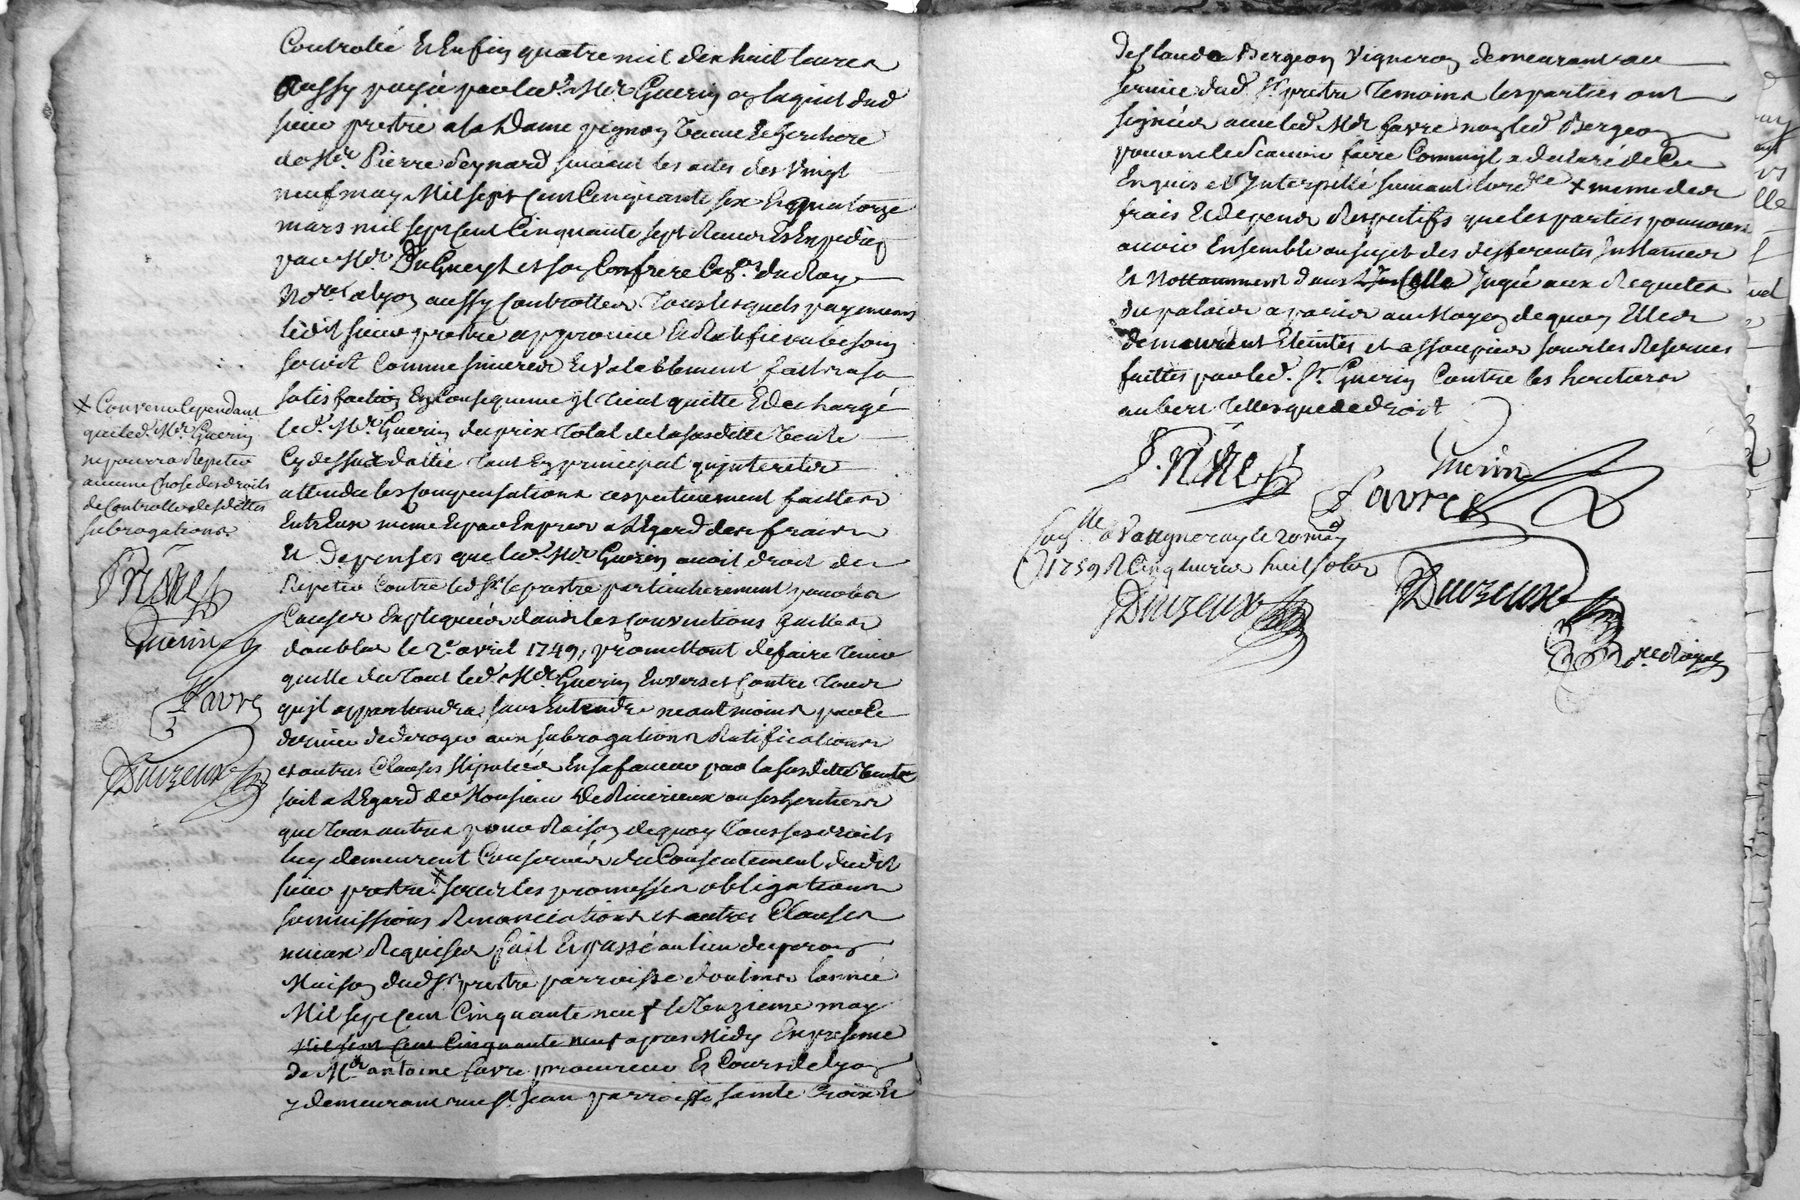 Controllé Et Enfin quatre mil dix huit livres
Aussy payée par led. Mr Guerin en laquit dud
sieur pretre a la Dame pignon veuve Et heritiere
de Mr Pierre Peynard suivant les actes des vingt
neuf may Mil sept cent Cinquante six Et quatorze
mars mil sept cent Cinquante sept Receu Et Expediés
par Mr DuGueyt et son Confrere Conrs du Roy
Nores a lyon aussy Controllés Tous lesquels payments
ledit sieur pretre approuve Et Ratifie au besoin
seroit Comme sinceres Et valablement faits a sa
satisfaction En Consequence jl tient quitte Et decharge
led. Mr Guerin du prix Total de la susditte vente
Cy dessus dattée Tant En principal qu'jnterets
attendu les Compensations respectivement faittes
Entr'Eux meme Et par Exprès a l'Egard des frais
Et Depenses que led. Mr Guerin avoit droit de
Repeter Contre led Sr le pretre particulierement pour les
Causes Expliquées dans les Conventions quittes
doubles le 2e avril 1749, promettant de faire Tenir
quitte du Tout led. Mr Guerin Envers et Contre Tous
qu'jl appartiendra, sans Entendre neantmoins par Ce
dernier de deroger aux subrogations Ratifications
et autres Clauses stipulées En sa faveur par la susditte vente
soit a l'Egard de Monsieur De Riverieux ou ses heritiers
que Tous autres pour Raison de quoy Tous ses droits
luy demeurent Conservés du Consentement dudit
sieur pretre # sous les promesses obligations
soumissions Renonciations et autres Clauses
mieux Requises fait Et passé au lieu du peron
Maison dud Sr pretre parroisse d'oulins l'année
Mil sept cent Cinquante neuf le Treizieme may
Mil sept cent Cinquante neuf apres Midy En presence
de Mr antoine favre procureur Es Cours de lyon
y demeurant rue St Jean parroisse Sainte Croix Et
# Convenu Cependant
que led. Mr Guerin
ne pourra Repeter
aucune Chose des droits
de Controlle desdittes
subrogations
Pretre
Guerin
Favre
Duvzeux
de Claude Bergeon Vigneron demeurant au
service dud. Sr pretre Temoins les parties ont
signées avec led Mr favre non led Bergeon
pour ne le scavoir faire Comme jl a declaré de Ce
Enquis et Interpellé suivant l'ordce # meme des
frais Et depens Respectifs que les parties pourroient
avoir Ensemble au sujet des differentes Instances
Et Nottamment dans Celle Jugée aux Requetes
du palais a paris au Moyen de quoy Elles
demeurent Eteintes et assoupies sous les Reserves
faittes par led. Sr Guerin Contre les heritiers
aubert Telles que de droit
Pretre
Guerin
Favre
Conlle a Vaugneray le 20 may
1759 R Cinq livres huit sols
Duvzeux
Duvzeux
Nre Royal